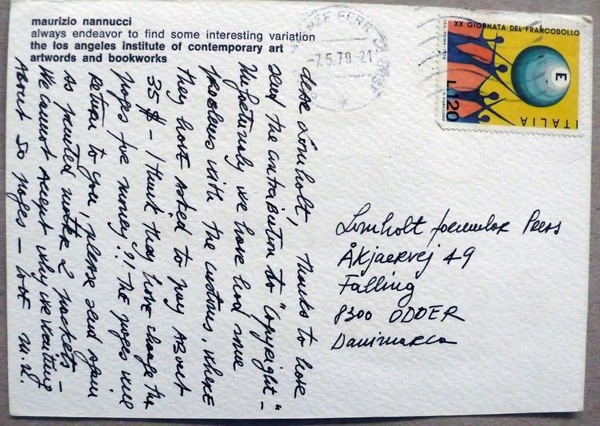 maurizio nannucci
always endeavor to find some interesting variation
the los angeles institute of contemporary art
artwords and bookworks
-7.5.79-21
XX GIORNATA DEL FRANCOBOLLO
E
ITALIA
L.120
dear Lomholt, thanks to have
send the contribution to "Copyright" -
Unfortunly we have had some
problems with the customs, where
they have asked to pay about
35 $ - I think they have change the
pages for money?!! The pages will
return to you, please send again
as printed matter 2 packets -
We cannot accept why we waiting
about 50 pages -
Lomholt formular Press
Åkjaervej 49
Falling
8300 ODDER
Danimarca